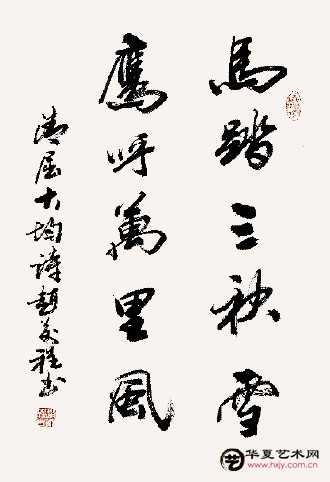 馬踏三秋雪
鷹呼萬里風
清屈大均詩趙程书
华夏艺术网
www.hxjy.com.cn